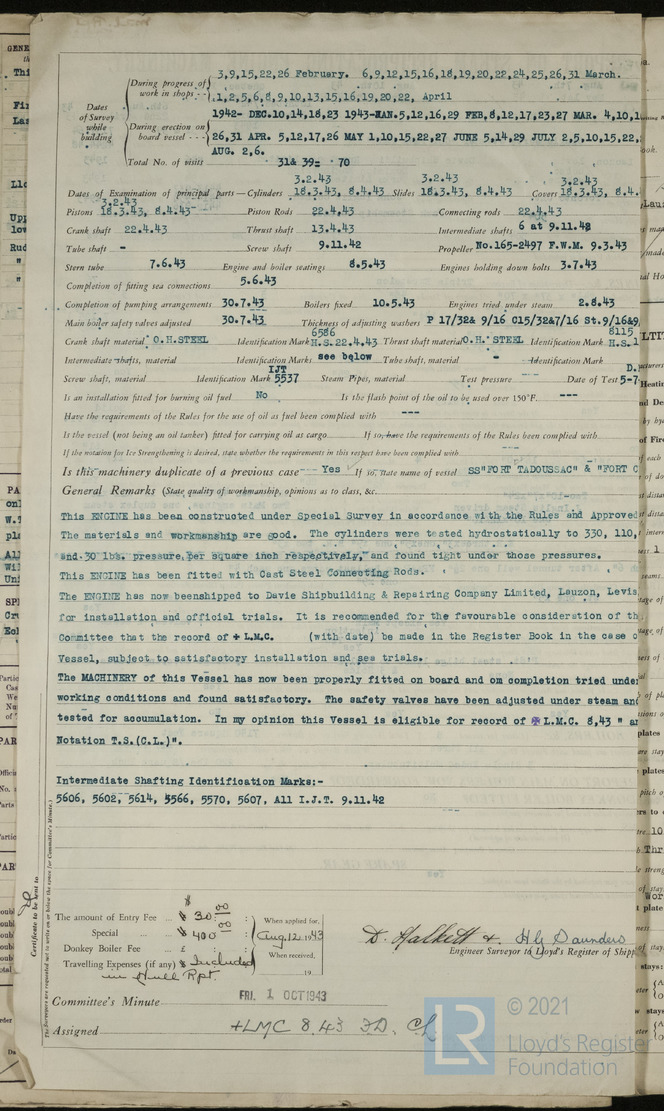 During progress of work in shops - - 3,9,15,22,26 February. 6,9,12,15,16,18,19,20,22,24,25,26,31 March.
1,2,5,6,8,9,10,13,15,16,19,20,22, April
Dates of Survey while building
During erection on board vessel - - - 1942- DEC.10,14,18,23 1943-JAN.5,12,16,29 FEB,8,12,17,23,27 MAR. 4,10,1
26,31 APR. 5,12,17,26 MAY 1,10,15,22,27 JUNE 5,14,29 JULY 2,5,10,15,22,
AUG. 2,6.
Total No. of visits 31& 39= 70
3.2.43 3.2.43 3.2.43
Dates of Examination of principal parts—Cylinders 18.3.43, 8.4.43 Slides 18.3.43, 8.4.43 Covers 18.3.43, 8.4.
3.2.43
Pistons 18.3.43, 8.4.43 Piston Rods 22.4.43 Connecting rods 22.4.43
Crank shaft 22.4.43 Thrust shaft 13.4.43 Intermediate shafts 6 at 9.11.42
Tube shaft - Screw shaft 9.11.42 Propeller No.165-2497 F.W.M. 9.3.43
Stern tube 7.6.43 Engine and boiler seatings 8.5.43 Engines holding down bolts 3.7.43
Completion of fitting sea connections 5.6.43
Completion of pumping arrangements 30.7.43 Boilers fixed 10.5.43 Engines tried under steam 2.8.43
Main boiler safety valves adjusted 30.7.43 Thickness of adjusting washers P 17/32& 9/16 C15/32&7/16 St.9/16&9
6586 8115
Crank shaft material O.H.STEEL Identification Mark H.S.22.4.43 Thrust shaft material O.H. STEEL Identification Mark H.S.1
Intermediate shafts, material Identification Marks see below Tube shaft, material - Identification Mark
IJT D.
Screw shaft, material Identification Mark 5537 Steam Pipes, material Test pressure Date of Test 5-7
Is an installation fitted for burning oil fuel No Is the flash point of the oil to be used over 150°F. ---
Have the requirements of the Rules for the use of oil as fuel been complied with ---
Is the vessel (not being an oil tanker) fitted for carrying oil as cargo If so, have the requirements of the Rules been complied with
If the notation for Ice Strengthening is desired, state whether the requirements in this respect have been complied with
Is this machinery duplicate of a previous case Yes If so, state name of vessel SS"FORT TADOUSSAC" & "FORT C
General Remarks (State quality of workmanship, opinions as to class, &c.
This ENGINE has been constructed under Special Survey in accordance with the Rules and Approved
The materials and workmanship are good. The cylinders were tested hydrostatically to 330, 110,
and 30 lbs. pressure, per square inch respectively, and found tight under those pressures.
This ENGINE has been fitted with Cast Steel Connecting Rods.
The ENGINE has now beenshipped to Davie Shipbuilding & Repairing Company Limited, Lauzon, Levis
for installation and official trials. It is recommended for the favourable consideration of th
Committee that the record of + L.M.C. (with date) be made in the Register Book in the case o
Vessel, subject to satisfactory installation and sea trials.
The MACHINERY of this Vessel has now been properly fitted on board and om completion tried unde
working conditions and found satisfactory. The safety valves have been adjusted under steam and
tested for accumulation. In my opinion this Vessel is eligible for record of + L.M.C. 8,43 " an
Notation T.S.(C.L.)".
Intermediate Shafting Identification Marks:-
5606, 5602, 5614, 5566, 5570, 5607, All I.J.T. 9.11.42
Certificate to be sent to
The Surveyors are requested not to write on or below the space for Committee's Minute.
$
The amount of Entry Fee ... $ 30:00 When applied for,
Special ... $ 400:00 Aug.12.1943
Donkey Boiler Fee ... £ : : When received,
Travelling Expenses (if any) $ Included 19
in Hull Rpt.
D. Halkett & H.G. Saunders
Engineer Surveyor to Lloyd's Register of Shipp
Committee's Minute FRI. 1 OCT 1943
Assigned +LMC 8.43 FD. CL
LR
© 2021
Lloyd's Register
Foundation